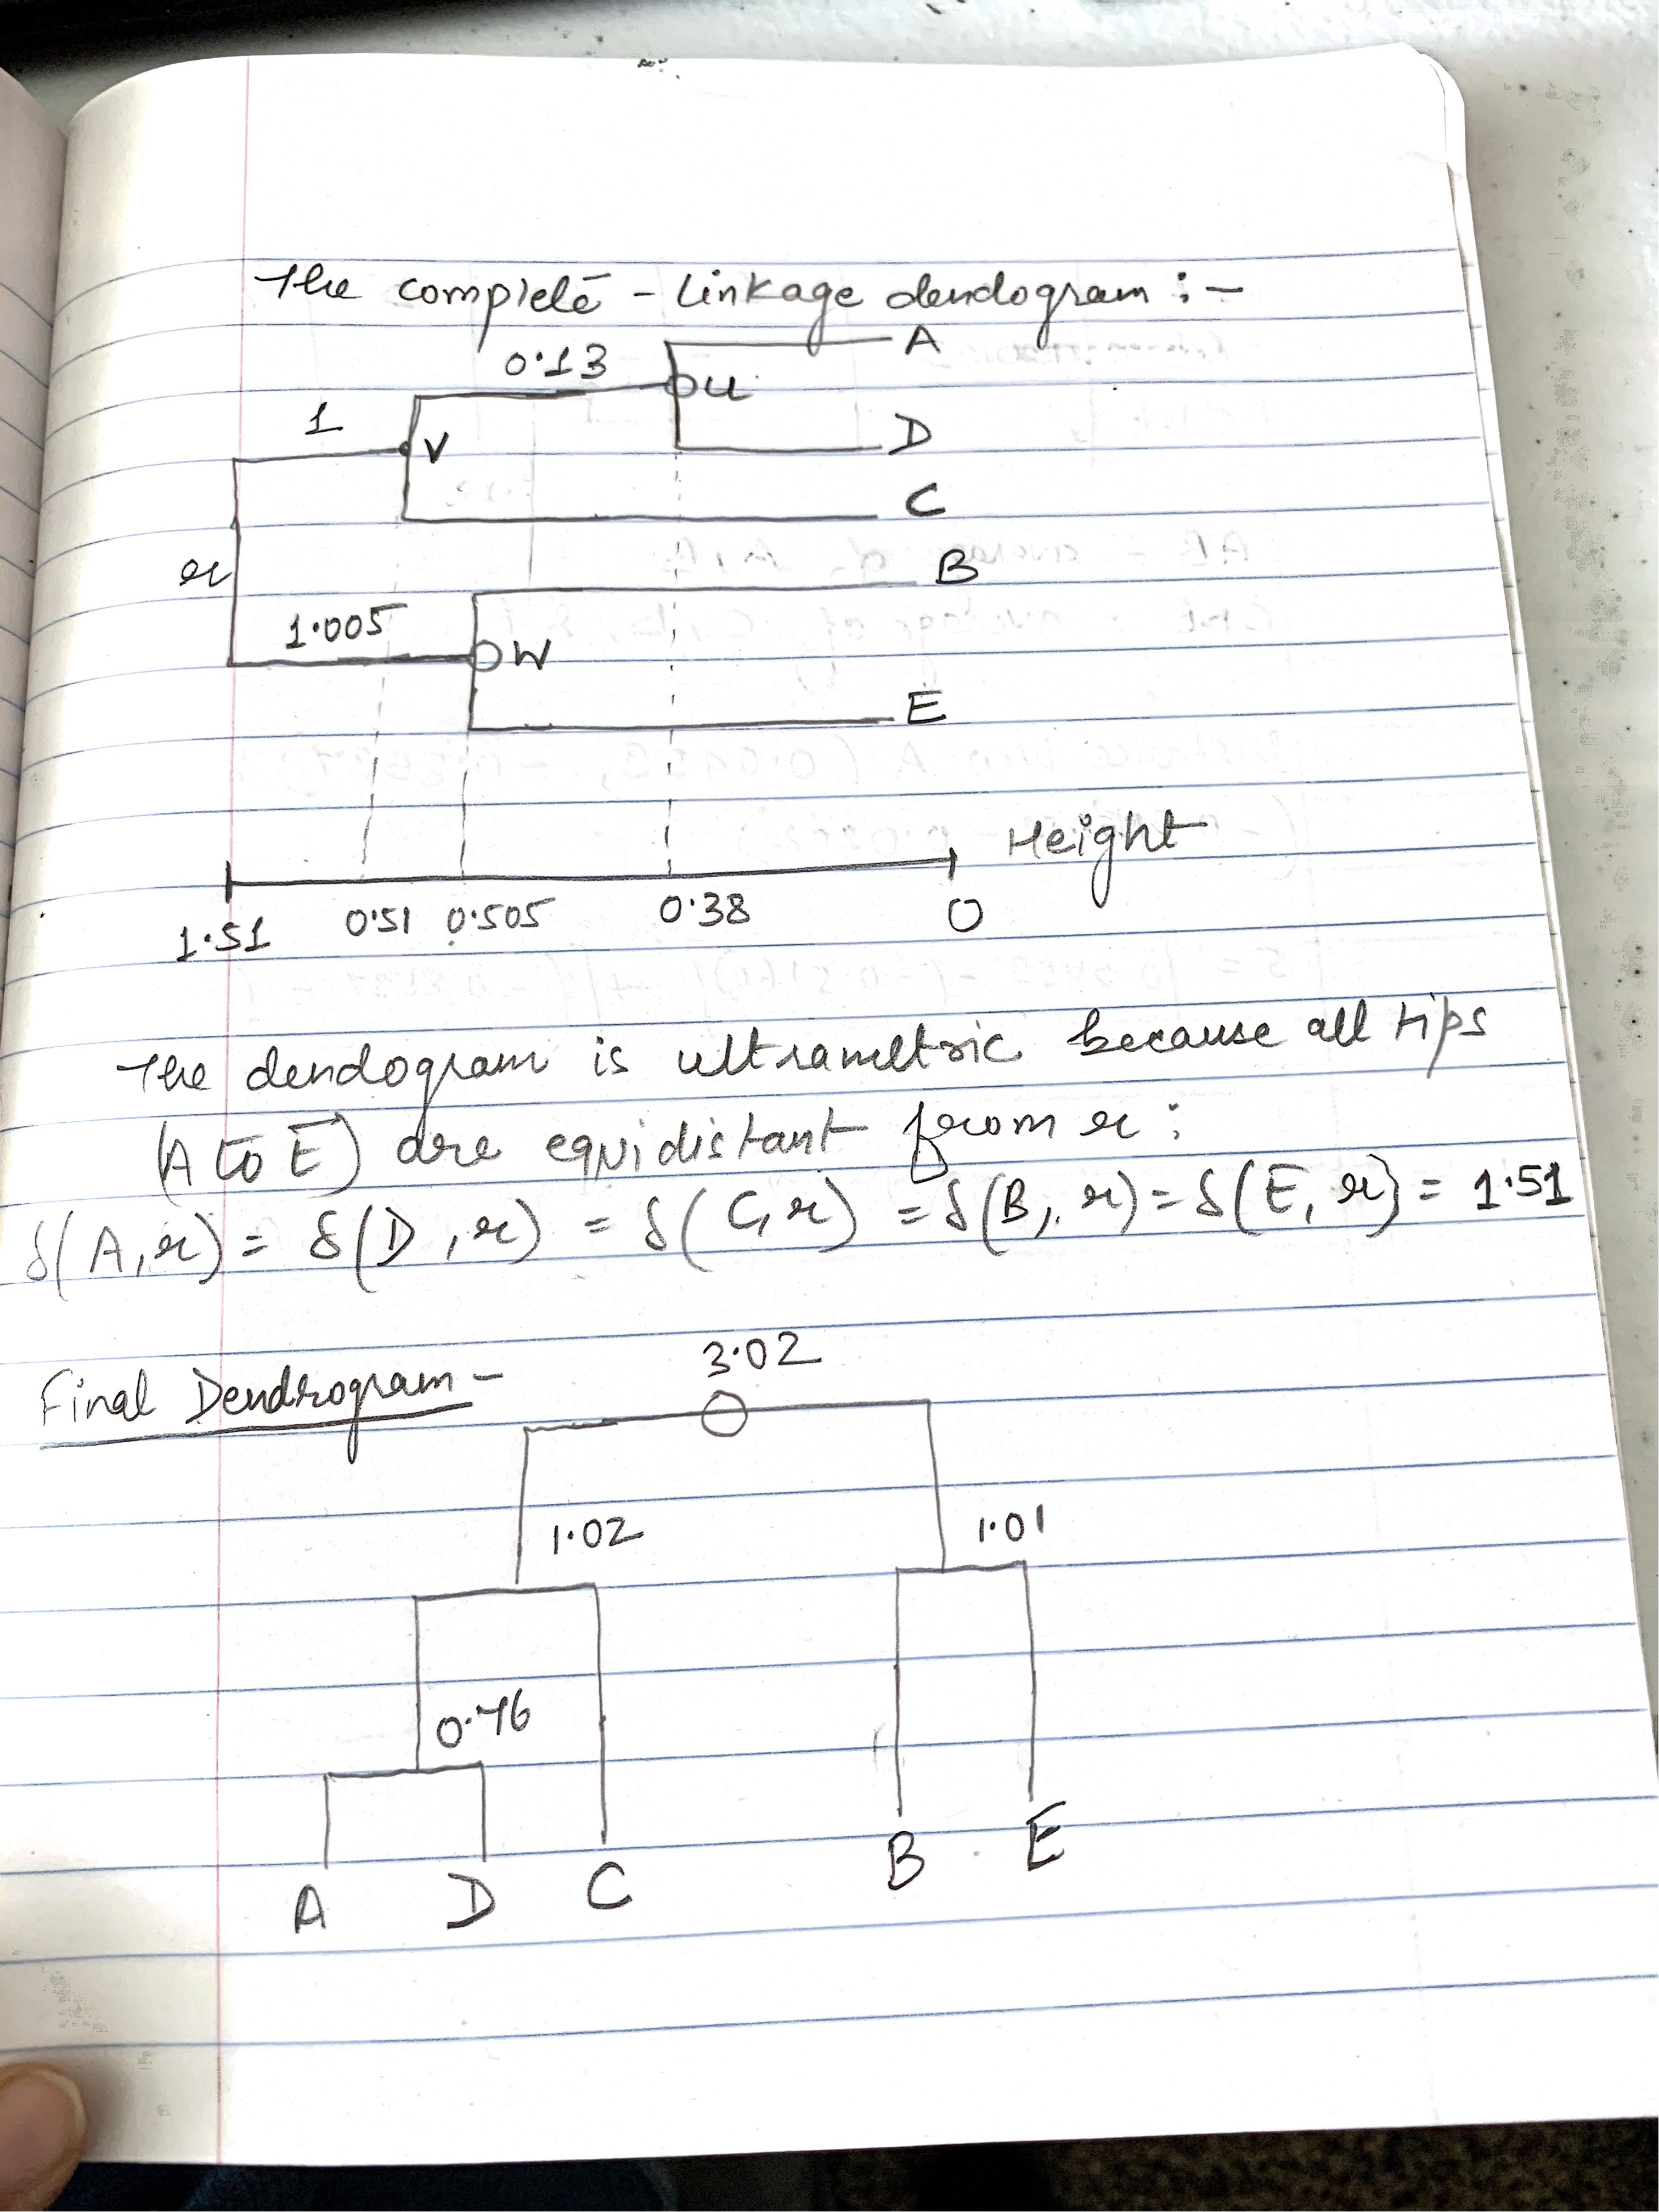 The complete - Linkage dendogram : -
A
0.13
u
1
V
D
C
r
B
1.005
W
E
Height
1.51 0.51 0.505 0.38 0
The dendogram is ultrametric because all tips
(A to E) are equidistant from r :
δ(A, r) = δ(D, r) = δ(C, r) = δ(B, r) = δ(E, r) = 1.51
3.02
Final Dendrogram -
1.02 1.01
0.76
A D C B E